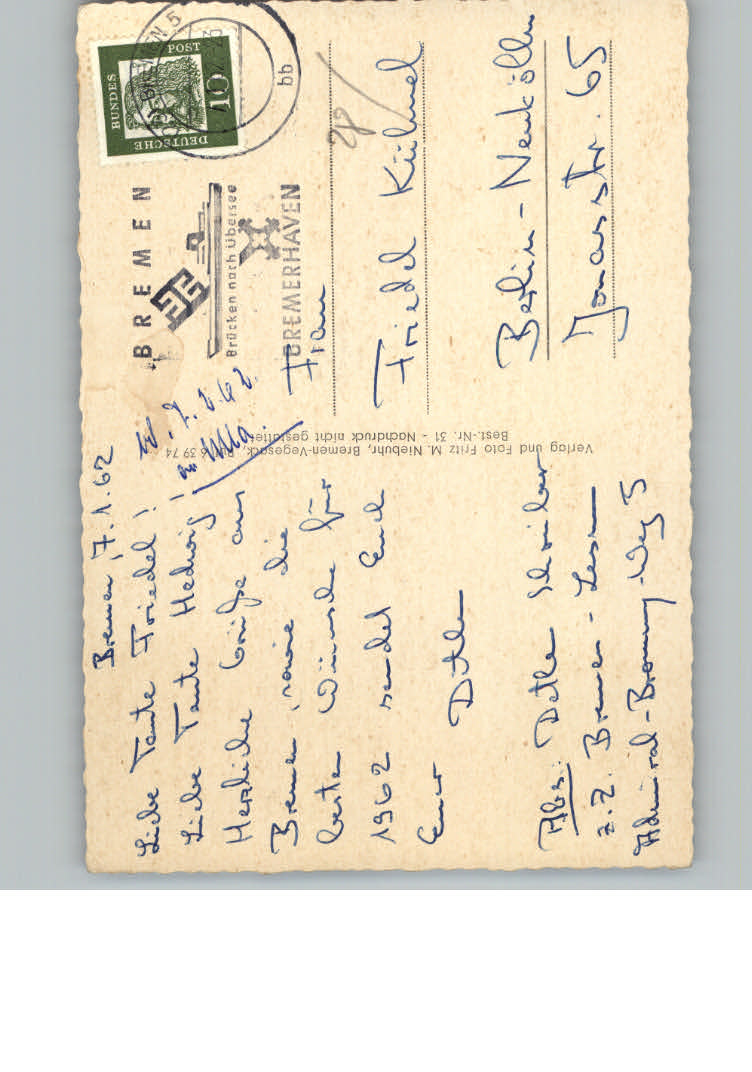 Bremen, 7.1.62
Liebe Tante Friedel!
Liebe Tante Hedwig!
Herzliche Grüße aus
Bremen, sowie die
besten Wünsche für
1962 sendet Euch
Euer
Detlev
Abs: Detlev
z.Z. Bremen-Lesum
Admiral-Brommy-Weg 5
7.2.62.
an Ulla.
Verlag und Foto Fritz M. Niebuhr, Bremen-Vegesack, 6 39 74
Best.-Nr. 31 - Nachdruck nicht gestattet
DEUTSCHE
BUNDES
POST
10
BREMEN 5
bb
BREMEN
Brücken nach Übersee
BREMERHAVEN
Frau
Friedel Kühnel
Berlin-Neukölln
Jonasstr. 65